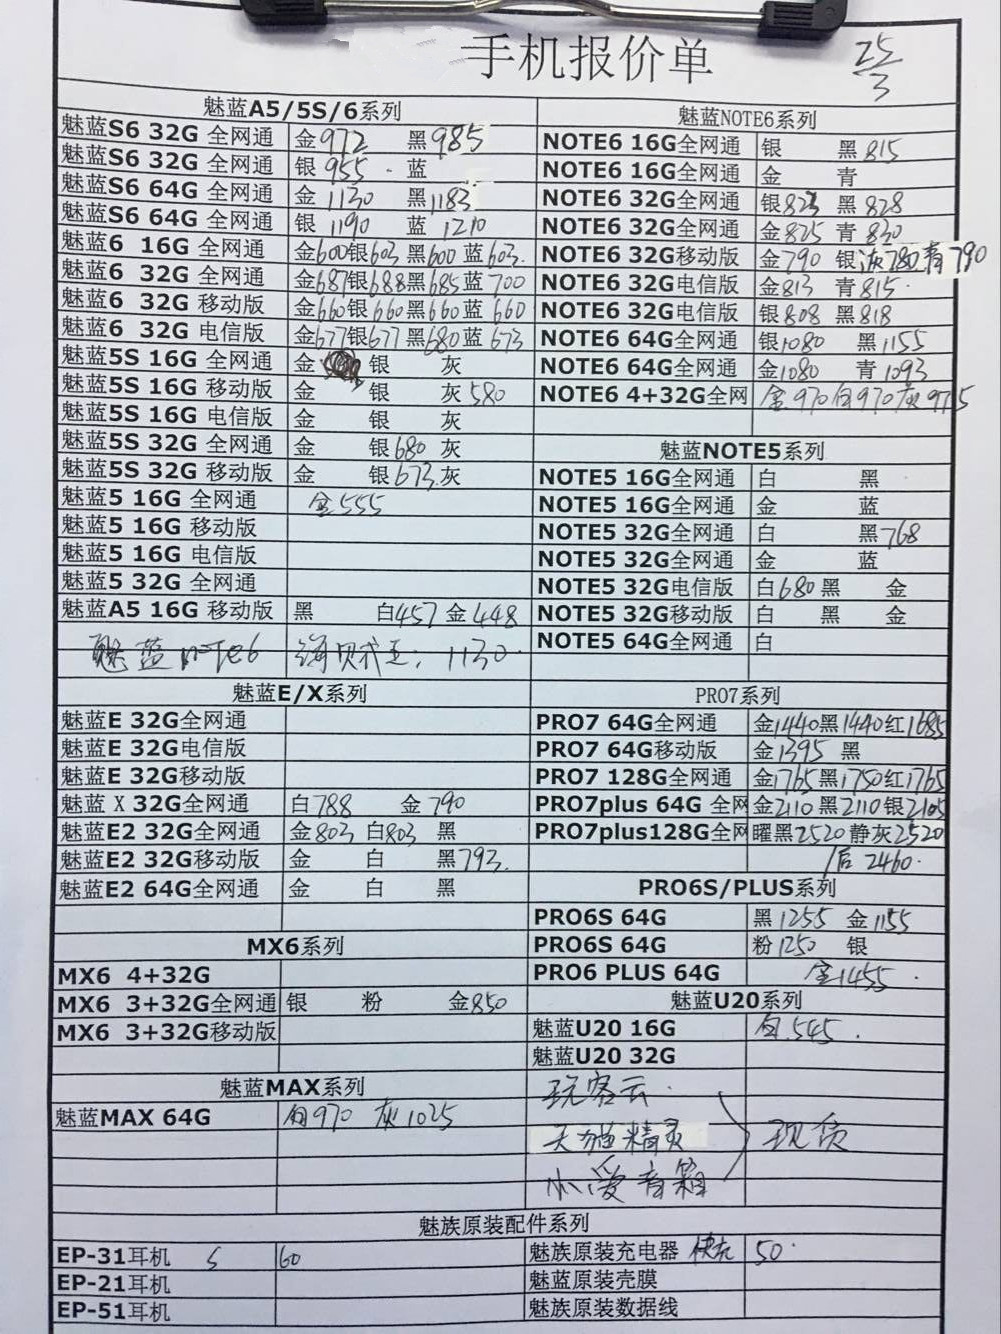 手机报价单
25/3
魅蓝A5/5S/6系列
魅蓝S6 32G 全网通 金972 黑985
魅蓝S6 32G 全网通 银955 蓝
魅蓝S6 64G 全网通 金1130 黑1183
魅蓝S6 64G 全网通 银1190 蓝1210
魅蓝6 16G 全网通 金600银603黑600蓝603.
魅蓝6 32G 全网通 金687银688黑685蓝700
魅蓝6 32G 移动版 金660银660黑660蓝660
魅蓝6 32G 电信版 金677银677黑680蓝673
魅蓝5S 16G 全网通 金 银 灰
魅蓝5S 16G 移动版 金 银 灰580
魅蓝5S 16G 电信版 金 银 灰
魅蓝5S 32G 全网通 金 银680灰
魅蓝5S 32G 移动版 金 银673.灰
魅蓝5 16G 全网通 金555
魅蓝5 16G 移动版
魅蓝5 16G 电信版
魅蓝5 32G 全网通
魅蓝A5 16G 移动版 黑 白457 金448
魅蓝note6 1130.
魅蓝NOTE6系列
NOTE6 16G全网通 银 黑815
NOTE6 16G全网通 金 青
NOTE6 32G全网通 银823 黑828
NOTE6 32G全网通 金825 青830
NOTE6 32G移动版 金790 银灰780青790
NOTE6 32G电信版 金813 青815
NOTE6 32G电信版 银808 黑818
NOTE6 64G全网通 银1080 黑1155
NOTE6 64G全网通 金1080 青1093
NOTE6 4+32G全网 金970白970灰975
魅蓝NOTE5系列
NOTE5 16G全网通 白 黑
NOTE5 16G全网通 金 蓝
NOTE5 32G全网通 白 黑768
NOTE5 32G全网通 金 蓝
NOTE5 32G电信版 白680黑 金
NOTE5 32G移动版 白 黑 金
NOTE5 64G全网通 白
魅蓝E/X系列
魅蓝E 32G全网通
魅蓝E 32G电信版
魅蓝E 32G移动版
魅蓝 X 32G全网通 白788 金790
魅蓝E2 32G全网通 金803 白803 黑
魅蓝E2 32G移动版 金 白 黑793.
魅蓝E2 64G全网通 金 白 黑
PRO7系列
PRO7 64G全网通 金1440黑1440红1685
PRO7 64G移动版 金1395 黑
PRO7 128G全网通 金1765黑1750红1765
PRO7plus 64G 全网 金2110黑2110银2105
PRO7plus128G全网 曜黑2520静灰2520
2460.
PRO6S/PLUS系列
PRO6S 64G 黑1255 金1155
PRO6S 64G 粉1250 银
PRO6 PLUS 64G 金1455
MX6系列
MX6 4+32G
MX6 3+32G全网通 银 粉 金850
MX6 3+32G移动版
魅蓝U20系列
魅蓝U20 16G 白545.
魅蓝U20 32G
魅蓝MAX系列
魅蓝MAX 64G 白970 灰1025
玩客云
天猫精灵
小爱音箱
现货
魅族原装配件系列
EP-31耳机 60
EP-21耳机
EP-51耳机
魅族原装充电器 快充 50
魅蓝原装壳膜
魅族原装数据线